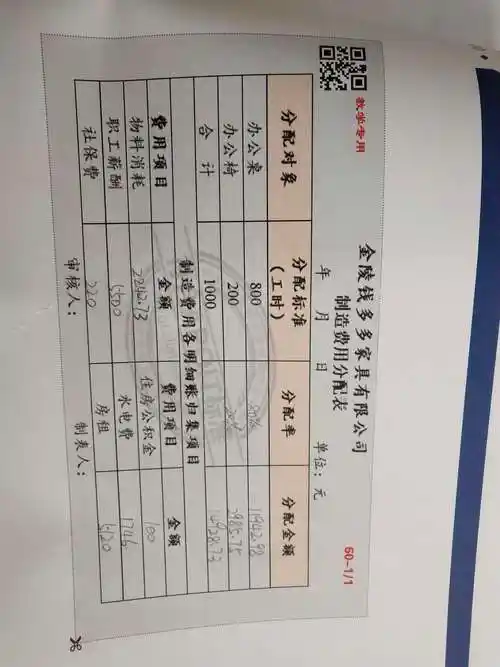 教学专用
60-1/1
金陵钱多多家具有限公司
制造费用分配表
年 月 日 单位：元
分配对象 分配标准（工时） 分配率 分配金额
办公桌 800 80% 11942.98
办公椅 200 20% 2985.75
合计 1000 14928.73
制造费用各明细账归集项目
费用项目 金额 费用项目 金额
物料消耗 2242.73 住房公积金 100
职工薪酬 5500 水电费 1746
社保费 220 房租 5120
审核人： 制表人：